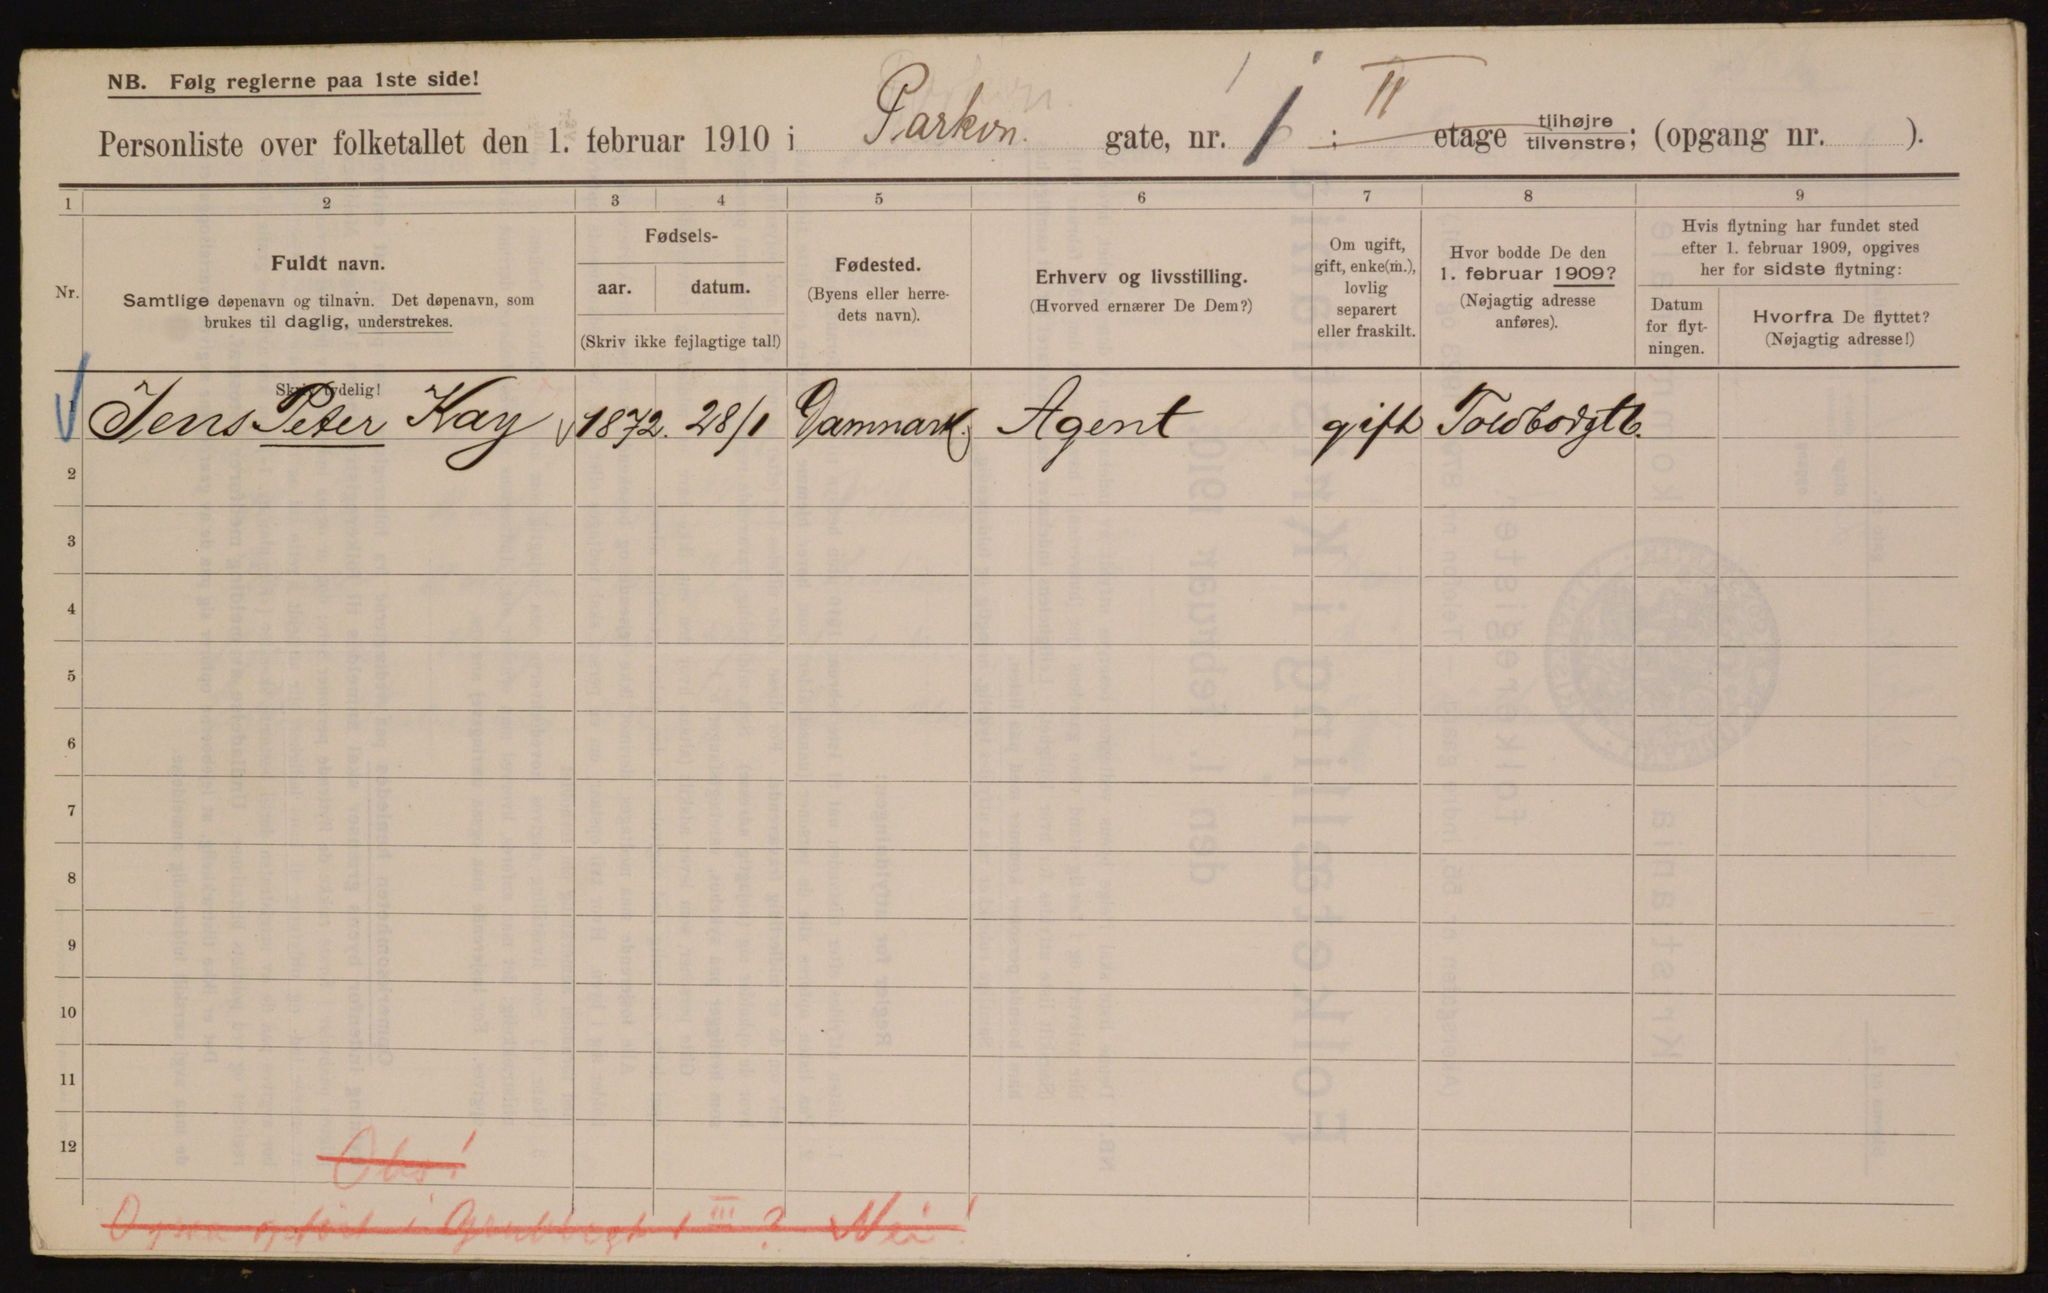 NB. Følg reglerne paa 1ste side!
Personliste over folketallet den 1. februar 1910 i Parkvn. gate, nr. 1 : II etage tilhøjre tilvenstre; (opgang nr. ).
1 2 3 4 5 6 7 8 9
Nr.
Fuldt navn.
Samtlige døpenavn og tilnavn. Det døpenavn, som
brukes til daglig, understrekes.
Skriv tydelig!
Fødsels-
aar. datum.
(Skriv ikke fejlagtige tal!)
Fødested.
(Byens eller herre-
dets navn).
Erhverv og livsstilling.
(Hvorved ernærer De Dem?)
Om ugift,
gift, enke(m.),
lovlig
separert
eller fraskilt.
Hvor bodde De den
1. februar 1909?
(Nøjagtig adresse
anføres).
Hvis flytning har fundet sted
efter 1. februar 1909, opgives
her for sidste flytning:
Datum
for flyt-
ningen.
Hvorfra De flyttet?
(Nøjagtig adresse!)
1 Jens Peter Kay 1872. 28/1 Danmark. Agent gift Toldbodgt
2
3
4
5
6
7
8
9
10
11
12
Obs!
opført i Grubbegt 1 III? Nei!